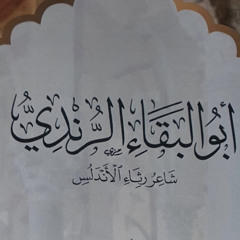 أَبُو البَقَاءِ الرُّنْدِيُّ
شَاعِرُ رِثَاءِ الْأَنْدَلُسِ